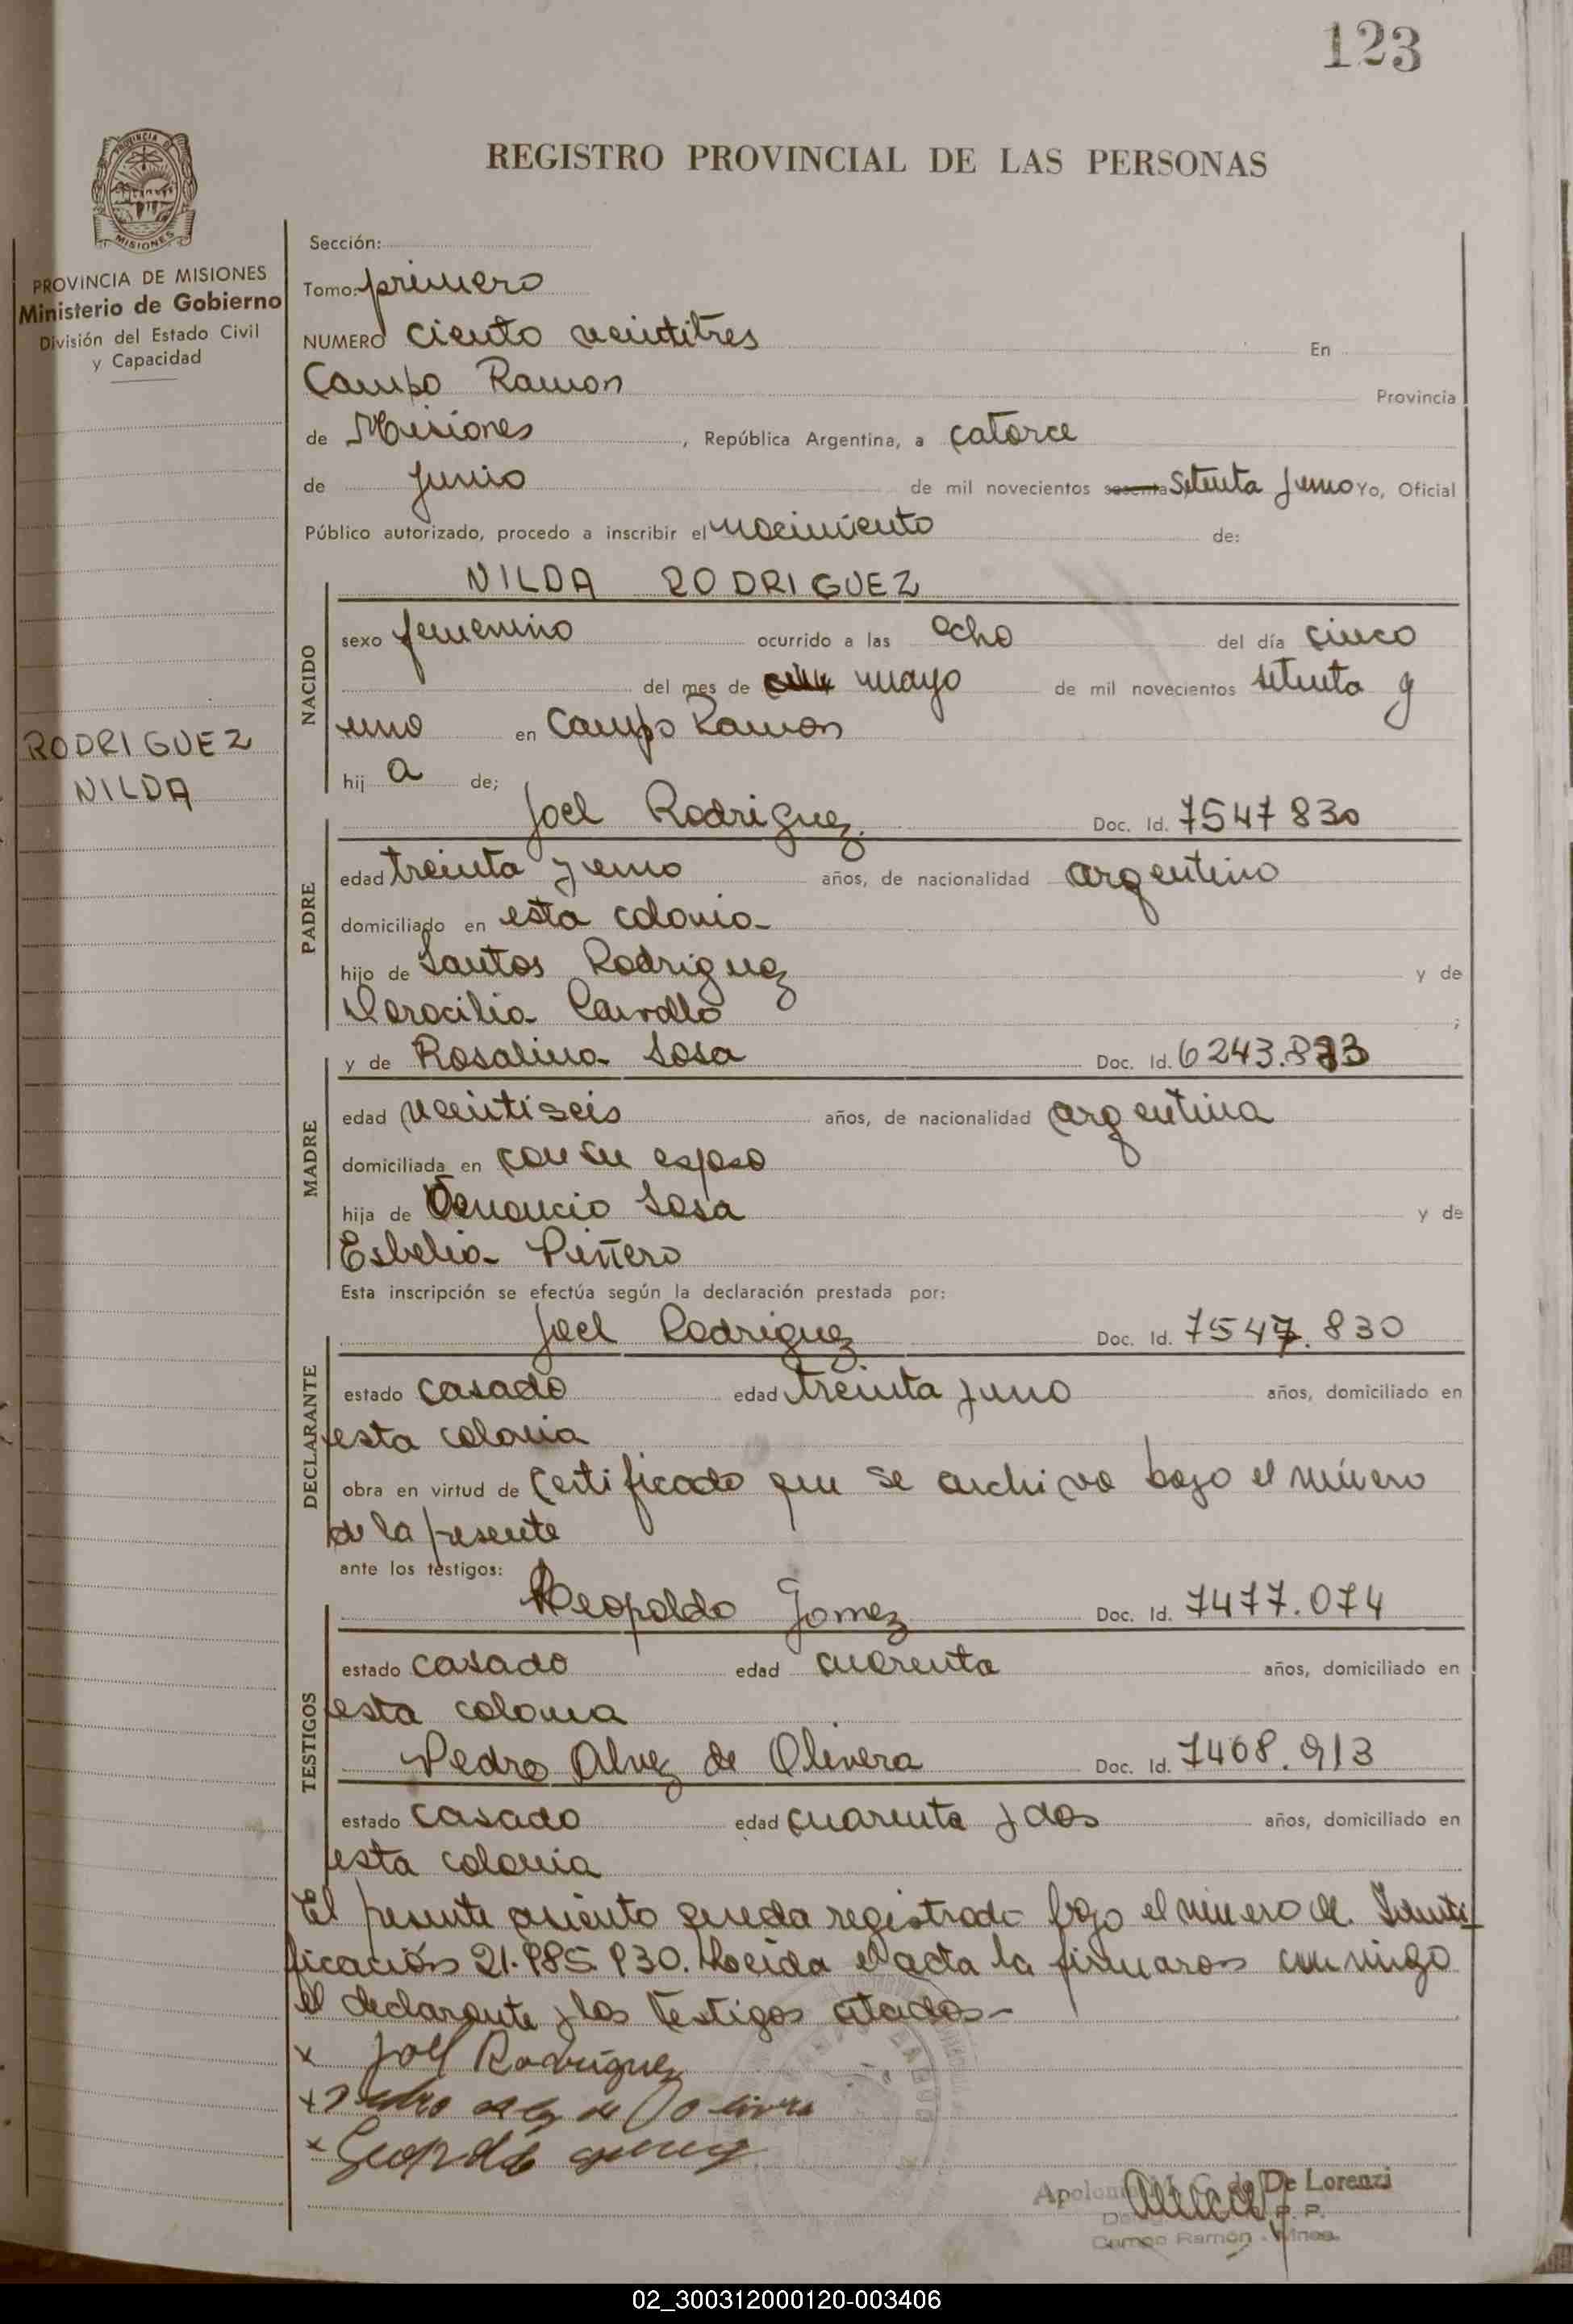 123
PROVINCIA DE
MISIONES
REGISTRO PROVINCIAL DE LAS PERSONAS
PROVINCIA DE MISIONES
Ministerio de Gobierno
División del Estado Civil
y Capacidad
RODRIGUEZ
NILDA
Sección:
Tomo: primero
NUMERO ciento veintitres En
Campo Ramon Provincia
de Misiones, República Argentina, a catorce
de junio de mil novecientos sesenta Setenta y uno Yo, Oficial
Público autorizado, procedo a inscribir el nacimiento de:
NILDA RODRIGUEZ
NACIDO
sexo femenino ocurrido a las ocho del día cinco
del mes de mayo de mil novecientos setenta y
uno en Campo Ramon
hij a de;
PADRE
Joel Rodriguez. Doc. Id. 7547830
edad treinta y uno años, de nacionalidad argentino
domiciliado en esta colonia
hijo de Santos Rodriguez y de
;
MADRE
y de Rosalina Sosa Doc. Id. 6243.
edad veintiseis años, de nacionalidad argentina
domiciliada en con su esposo
hija de Venancio Sosa y de
Esbelia Piñero
Esta inscripción se efectúa según la declaración prestada por:
DECLARANTE
Joel Rodriguez Doc. Id. 7547.830
estado casado edad treinta y uno años, domiciliado en
esta colonia
obra en virtud de Certificado que se archiva bajo el número
de la presente
ante los testigos:
TESTIGOS
Leopoldo Gomez Doc. Id. 7477.074
estado casado edad cuarenta años, domiciliado en
esta colonia
Pedro Alvez de Olivera Doc. Id. 7468.913
estado casado edad cuarenta y dos años, domiciliado en
esta colonia
El presente asiento queda registrado bajo el número de Identi-
ficación 21.985.930. Leida el acta la firmaron conmigo
el declarante y los testigos citados-
x Joel Rodriguez
x
x
De Lorenzi
Campo Ramón
02_300312000120-003406